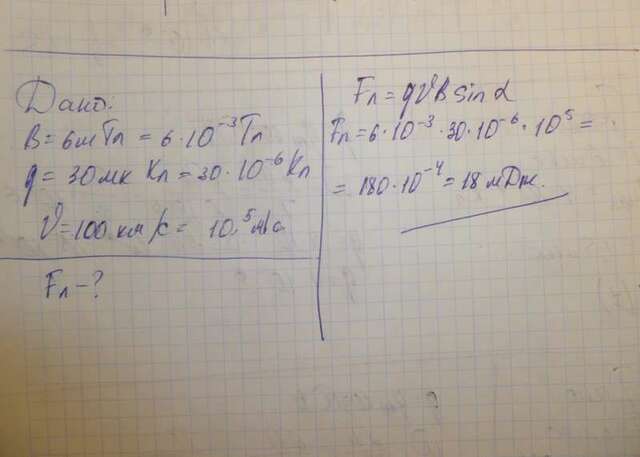 Дано:
B = 6 мТл = 6 · 10⁻³ Тл
q = 30 мк Кл = 30 · 10⁻⁶ Кл
V = 100 км/с = 10⁵ м/с
Fл – ?
Fл = qVB sin α
Fл = 6 · 10⁻³ · 30 · 10⁻⁶ · 10⁵ =
= 180 · 10⁻⁴ = 18 мДж.